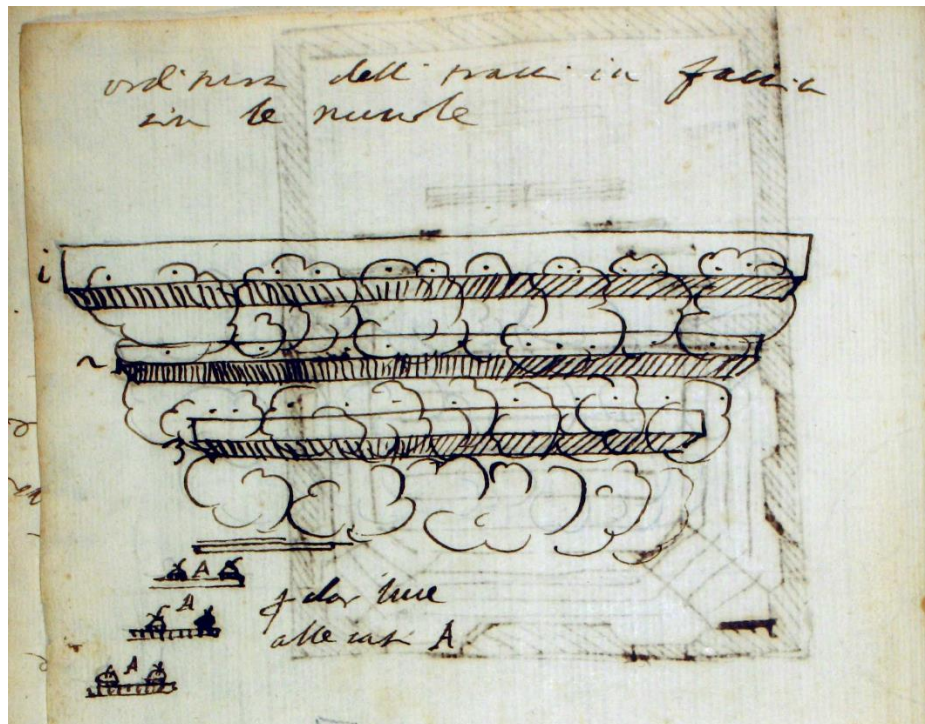 orditura delli palchi in faccia
sin le nuvole
i
2
3
A
A
A
p dar luce
alle cas A